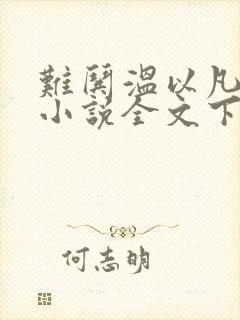 難鬨溫以凡
小說全文下
何志明